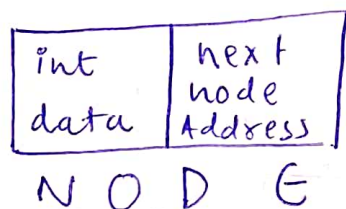 int
data
next
node
Address
NODE